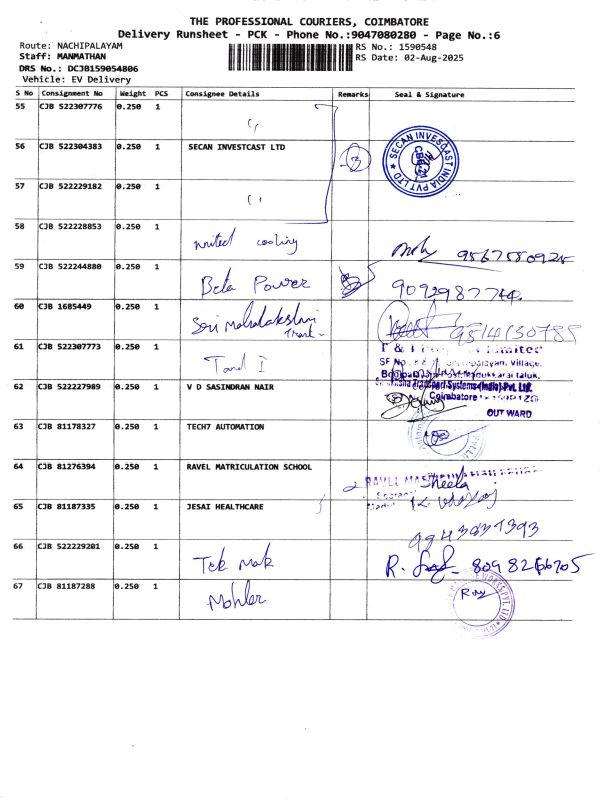 THE PROFESSIONAL COURIERS, COIMBATORE
Delivery Runsheet - PCK - Phone No.:9047080280 - Page No.:6
Route: NACHIPALAYAM
RS No.: 1590548
Staff: MANMATHAN
RS Date: 02-Aug-2025
DRS No.: DCJB159054806
Vehicle: EV Delivery
S No Consignment No Weight PCS Consignee Details Remarks Seal & Signature
55 CJB 522307776 0.250 1 "
56 CJB 522304383 0.250 1 SECAN INVESTCAST LTD 3 SECAN INVESCAST INDIA PVT LTD CBE-21
57 CJB 522229182 0.250 1 "
58 CJB 522228853 0.250 1 united cooling 9567580925
59 CJB 522244880 0.250 1 Beta Power
60 CJB 1685449 0.250 1 Sri Mahalakshmi
61 CJB 522307773 0.250 1 T and I
62 CJB 522227989 0.250 1 V D SASINDRAN NAIR Transport Systems (India) Pvt. Ltd.
Coimbatore
OUT WARD
63 CJB 81178327 0.250 1 TECH7 AUTOMATION
64 CJB 81276394 0.250 1 RAVEL MATRICULATION SCHOOL Sheela
65 CJB 81187335 0.250 1 JESAI HEALTHCARE
66 CJB 522229201 0.250 1 Tek Mak
67 CJB 81187288 0.250 1 Mohler